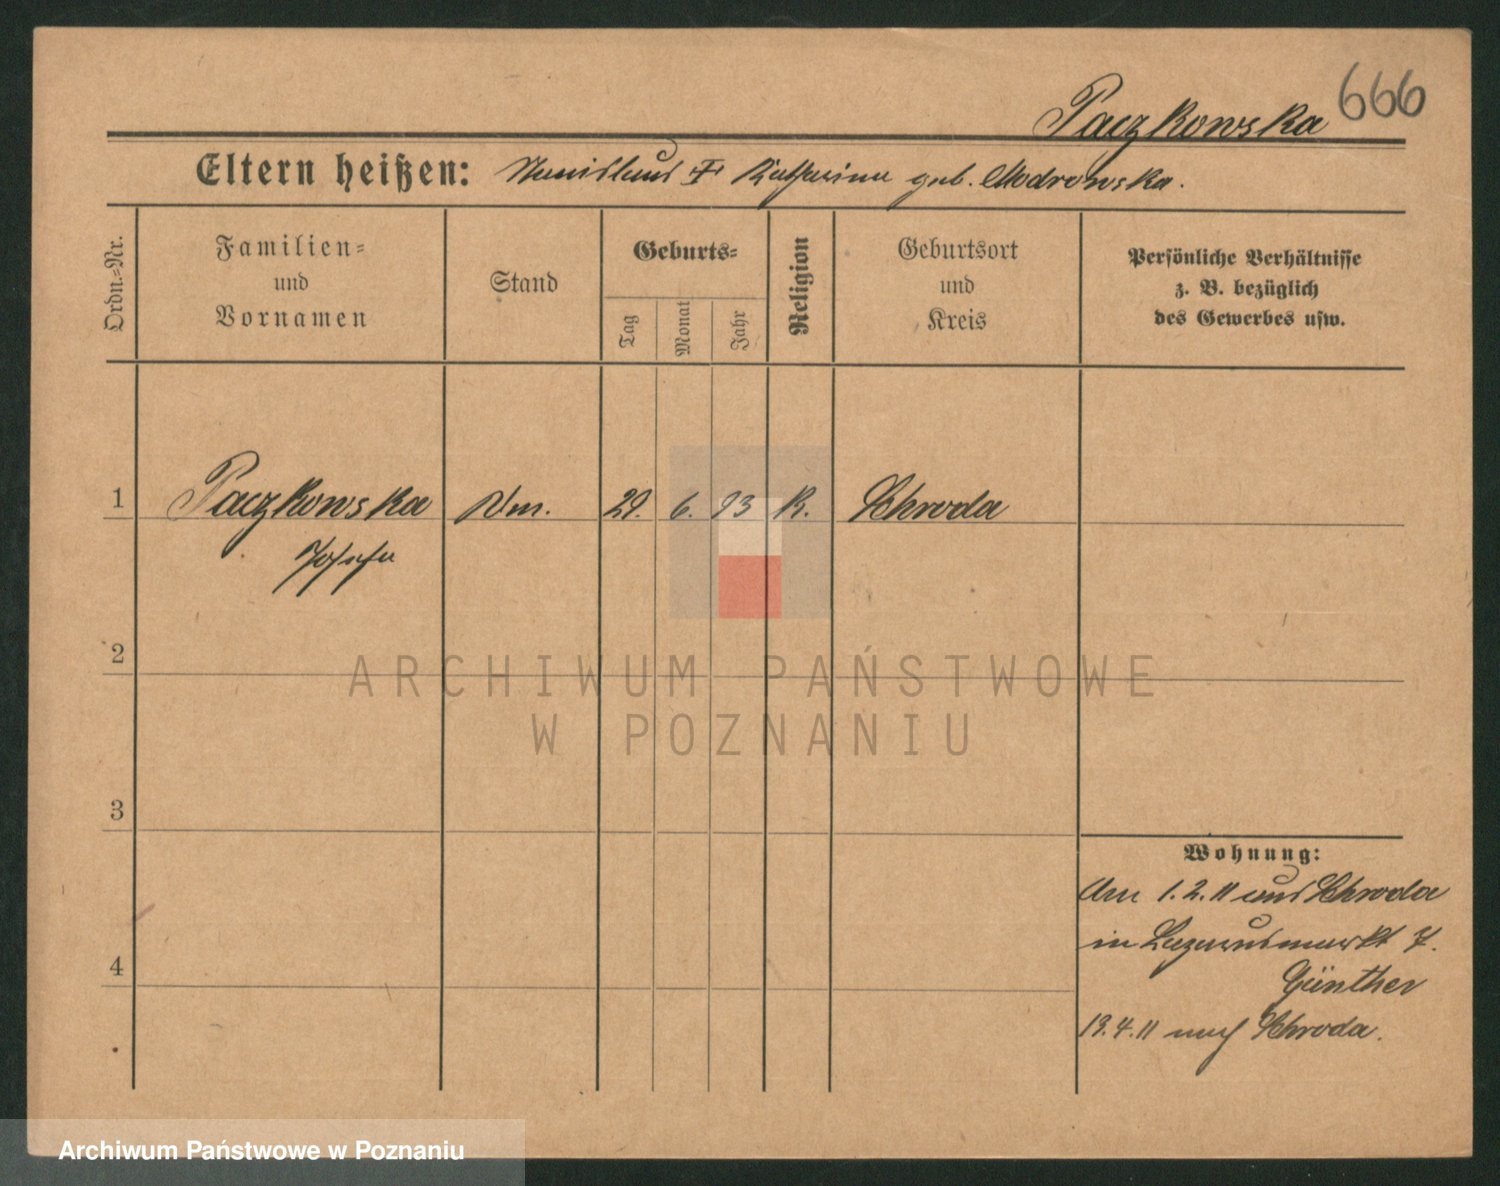 Paczkowska 666
Eltern heißen: Stanislaus u. Katharina geb. Modrowska.
Ordn.-Nr.
Familien-
und
Vornamen
Stand
Geburts-
Tag
Monat
Jahr
Religion
Geburtsort
und
Kreis
Persönliche Verhältnisse
z. B. bezüglich
des Gewerbes usw.
1 Paczkowska 29. 6. 93 K. Schroda
Josefa
2
3
4
Wohnung:
Am 1.2.11 aus Schroda
in Lazarusmarkt 7.
Günther
19.4.11 nach Schroda.
ARCHIWUM PAŃSTWOWE
W POZNANIU
Archiwum Państwowe w Poznaniu